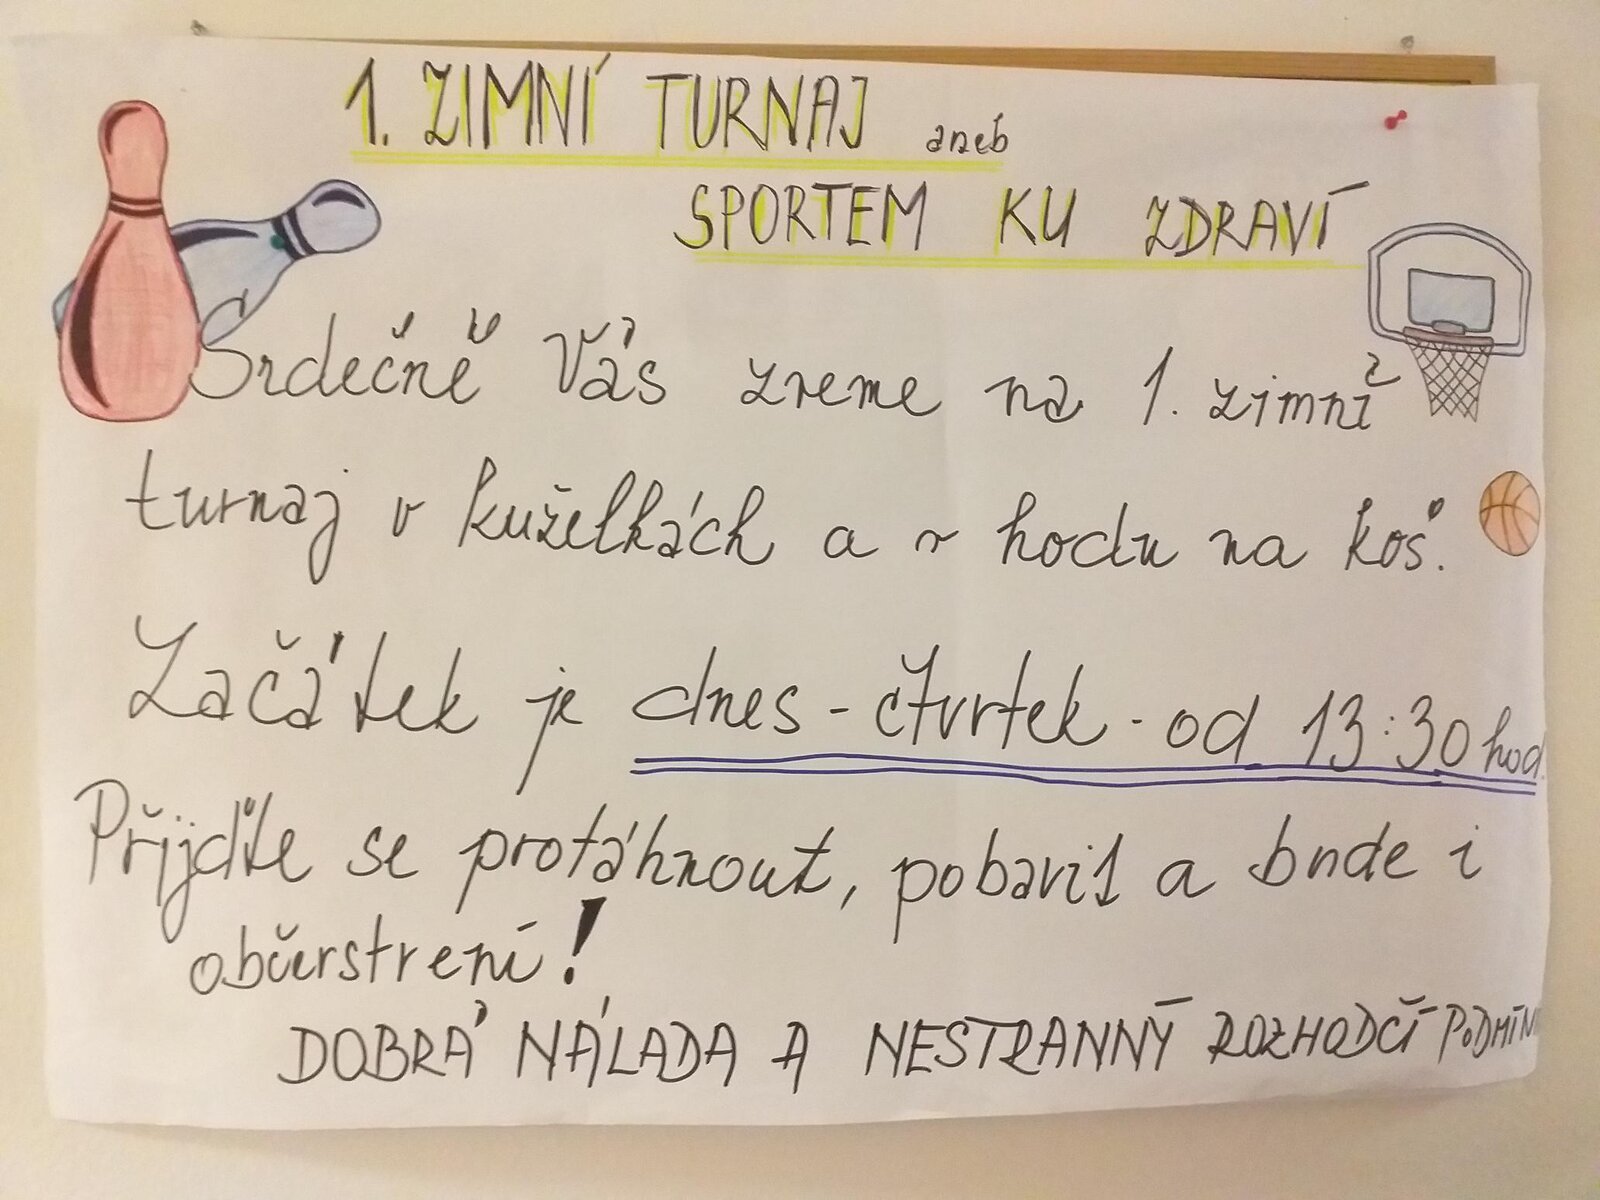 1. ZIMNÍ TURNAJ aneb
SPORTEM KU ZDRAVÍ
Srdečně Vás zveme na 1. zimní
turnaj v kuželkách a v hodu na koš.
Začátek je dnes - čtvrtek - od 13:30 hod.
Přijďte se protáhnout, pobavit a bude i
občerstvení!
DOBRÁ NÁLADA A NESTRANNÝ ROZHODČÍ PODMÍN